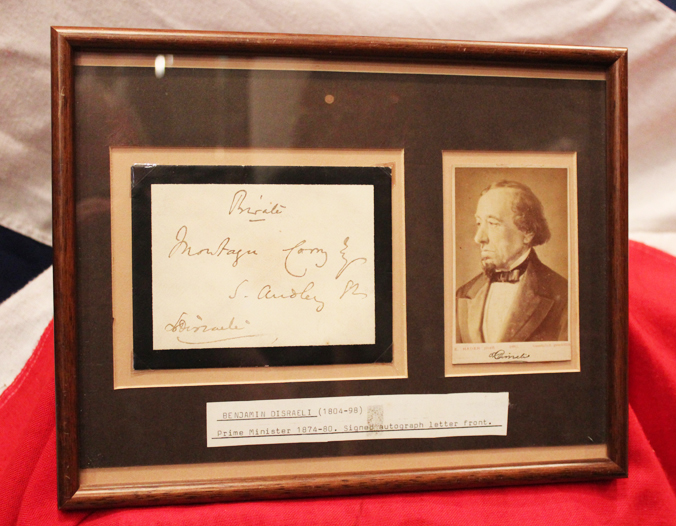 Private
Montagu Corry Esq
S. Audley St
Disraeli
Disraeli
BENJAMIN DISRAELI (1804-98)
Prime Minister 1874-80. Signed autograph letter front.